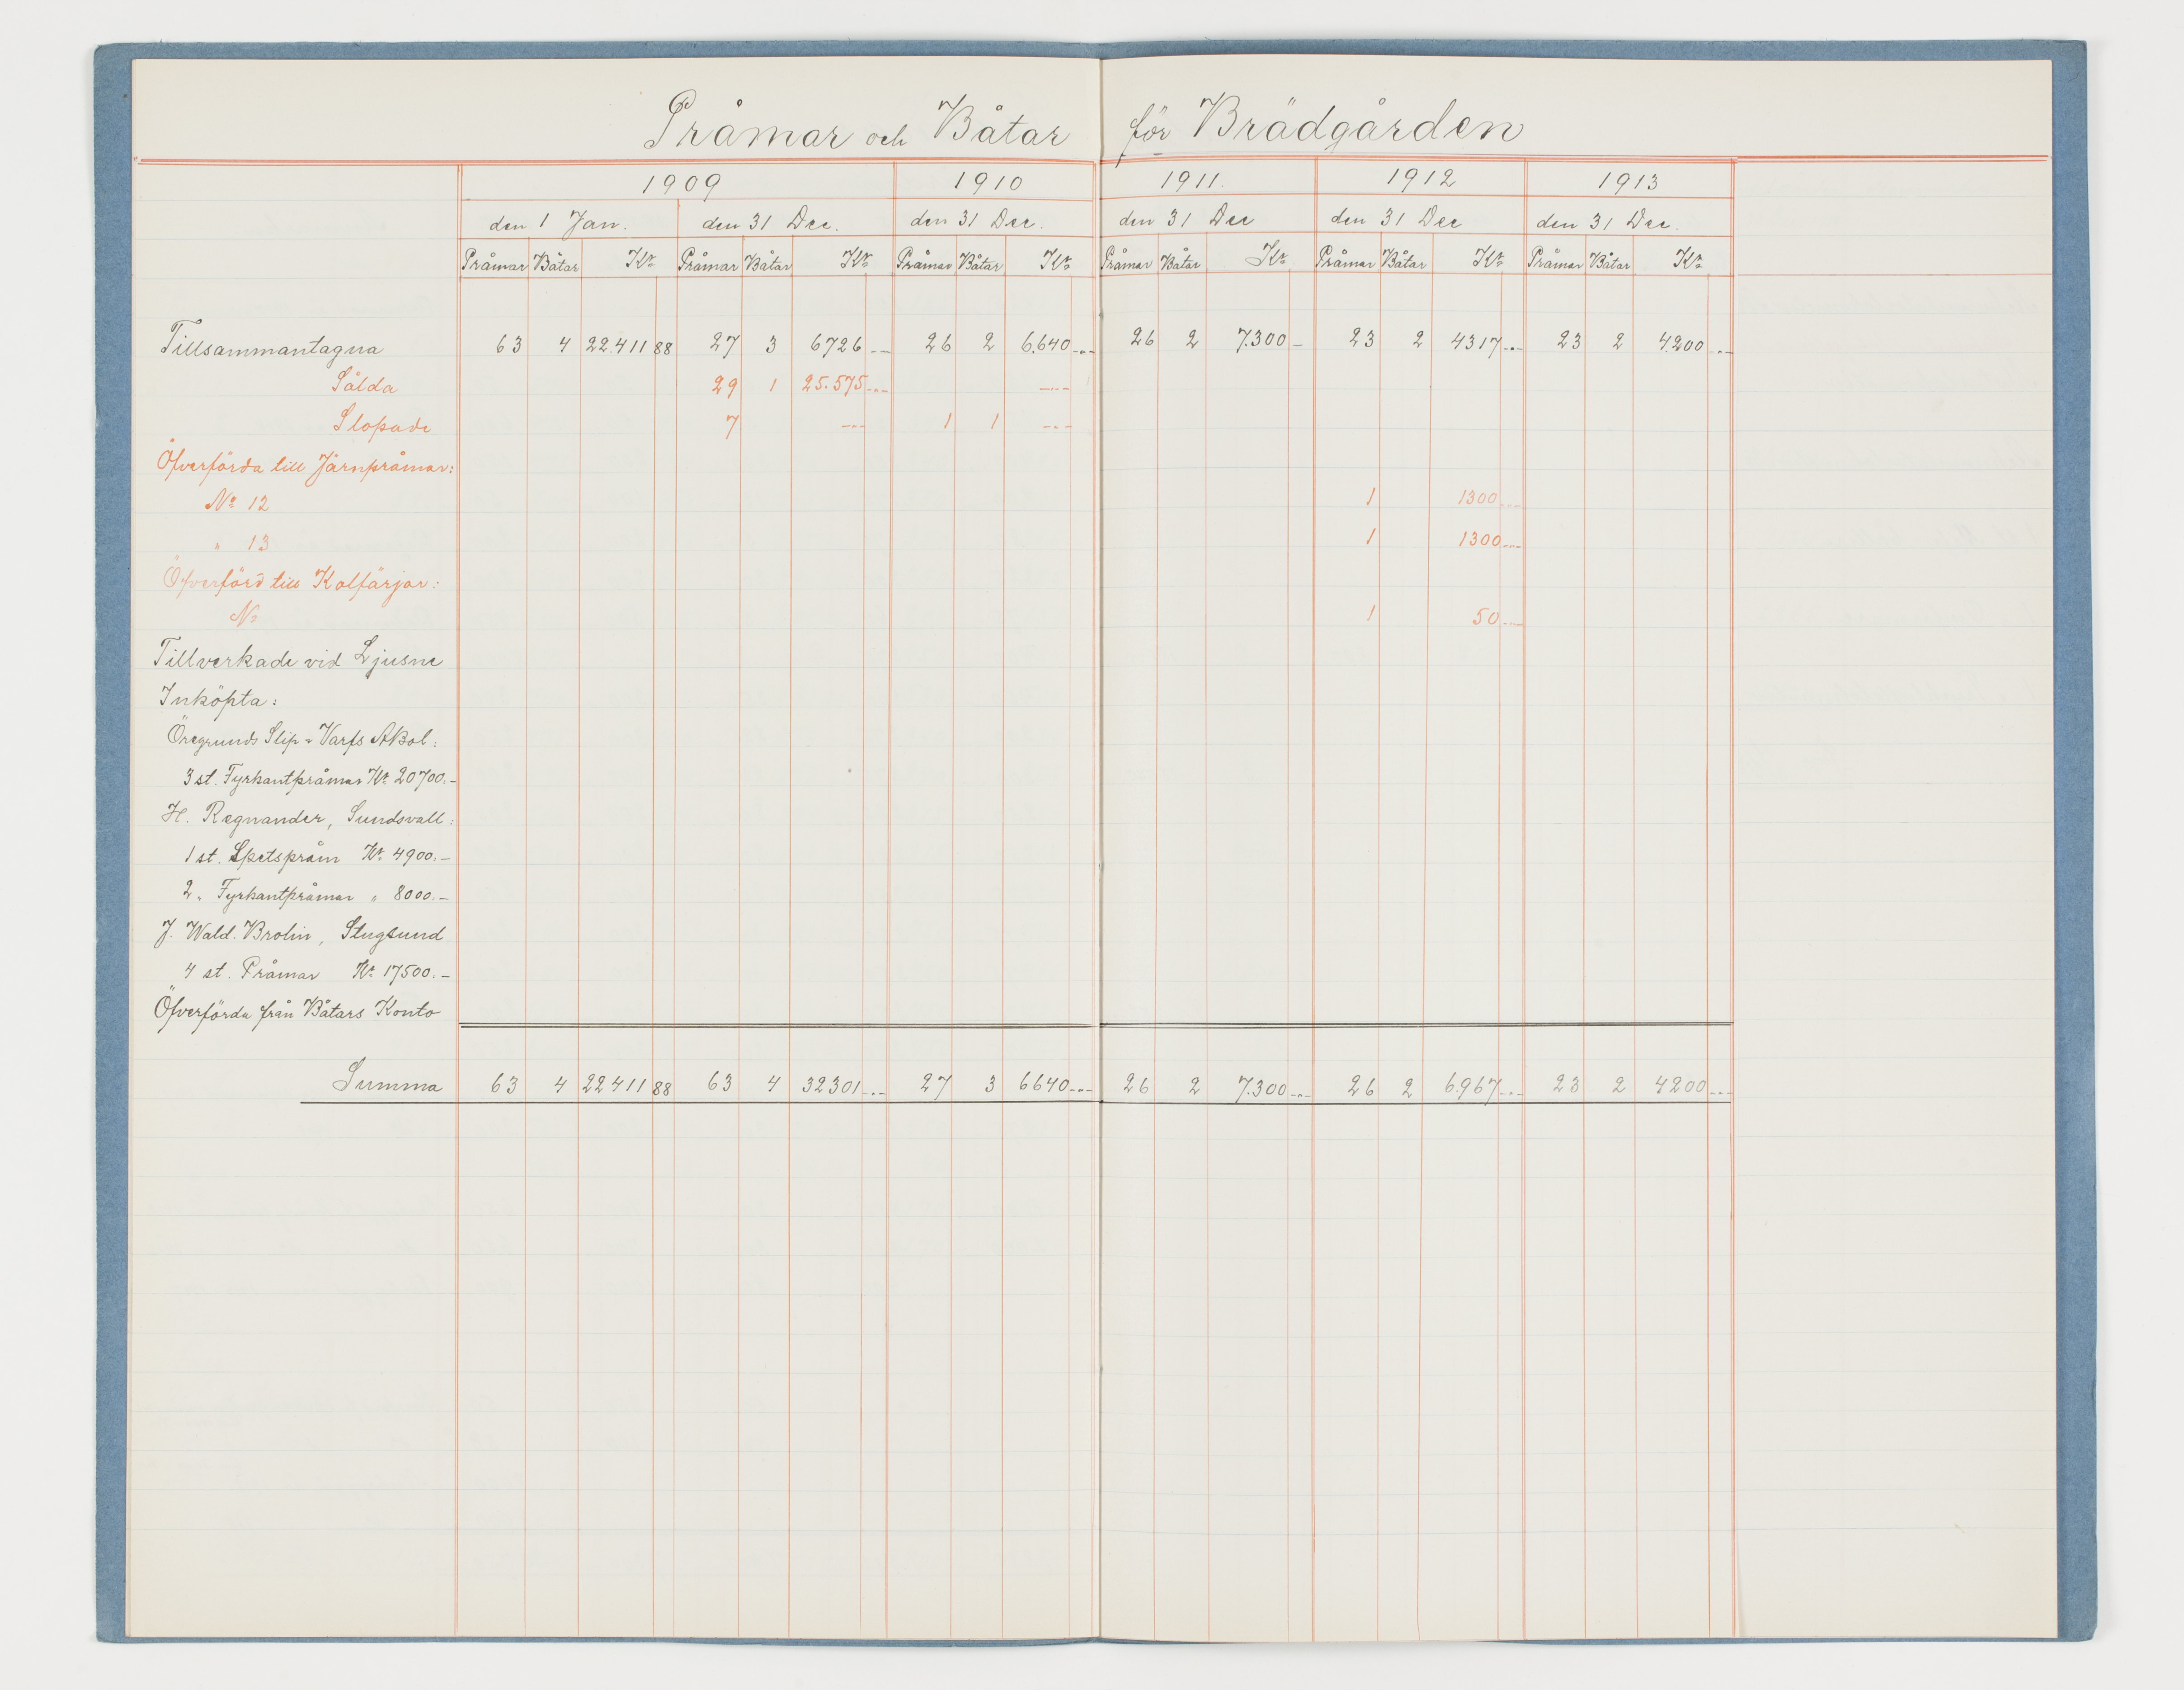 Pråmar och Båtar för Brädgården
1909 1910 1911. 1912 1913
den 1 Jan. den 31 Dec. den 31 Dec. den 31 Dec den 31 Dec den 31 Dec.
Pråmar Båtar Kr Pråmar Båtar Kr Pråmar Båtar Kr Pråmar Båtar Kr Pråmar Båtar Kr Pråmar Båtar Kr
Tillsammantagna 63 4 22.411 88 27 3 6726 -.- 26 2 6.640 -.- 26 2 7.300 - 23 2 4317 -.- 23 2 4.200 -.-
Sålda 29 1 25.575 -.- -.-
Slopade 7 -.- 1 1 -.-
Öfverförda till Järnpråmar:
No 12 1 1300 -.-
" 13 1 1300 -.-
Öfverförd till Kolfärjor:
No 1 50 -.-
Tillverkade vid Ljusne
Inköpta:
Öregrunds Slip & Varfs ABol:
3 st. Fyrkantpråmar Kr. 20700.-
H. Regnander, Sundsvall:
1 st. Spetspråm Kr. 4900.-
2 " Fyrkantpråmar " 8000.-
J. Wald. Brolin, Stugsund
4 st. Pråmar Kr. 17500.-
Öfverförda från Båtars Konto
Summa 63 4 22411 88 63 4 32301 -.- 27 3 6640 -.- 26 2 7.300 -.- 26 2 6.967 -.- 23 2 4200 -.-